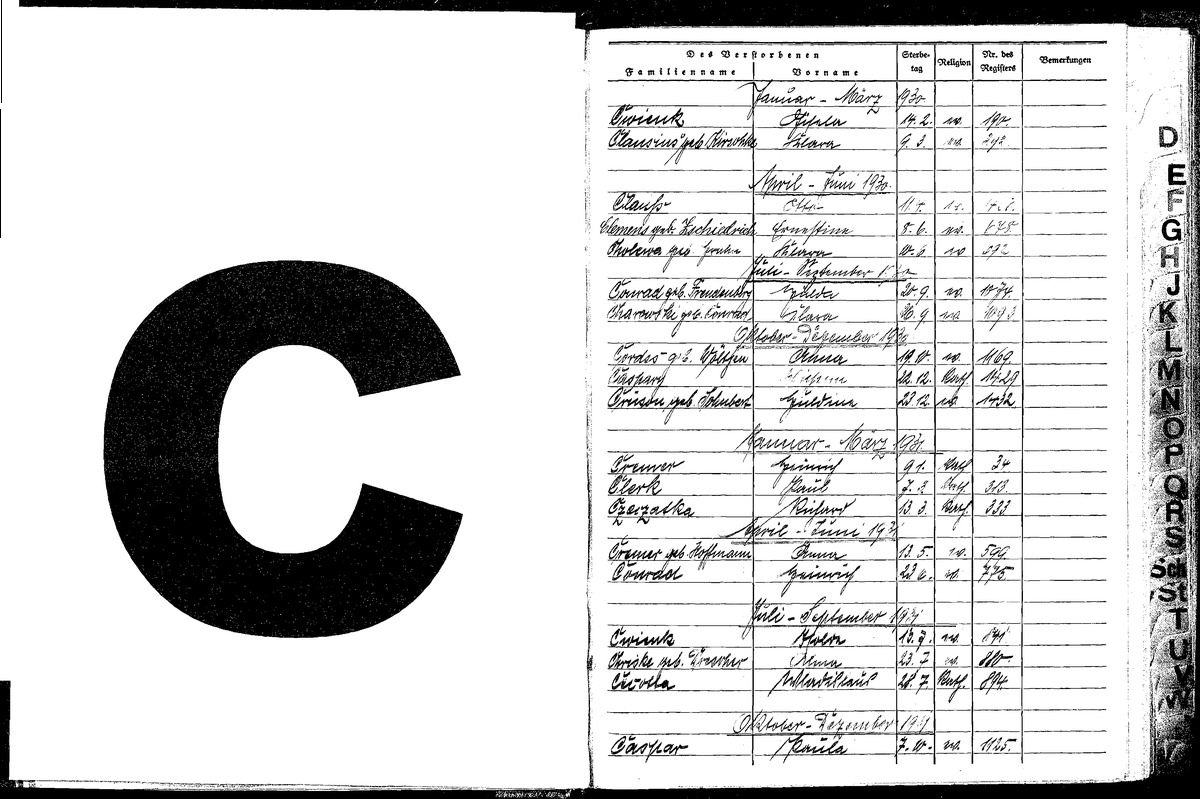 C
Des Verstorbenen Sterbe- Religion Nr. des Bemerkungen
Familienname Vorname tag Registers
Januar - März 1930
Cwienk 14. 2. ev. 190.
Clausius geb. Kirschke Klara 9. 3. ev. 292.
April - Juni 1930.
Clauß Otto
Clemens geb. Zschiedrich Ernestine 8. 6. ev.
Cholewa geb. Klara 10. 6. ev 592
Juli - September
Conrad geb. Freudenberg Hulda 20. 9. ev. 1074.
geb. Conrad Klara 26. 9 ev. 1093
Oktober - Dezember 1930
Cordes geb. Anna 19. 10. ev. 1169.
Caspary 22. 12. Kath. 1429
geb. Schubert 23. 12. ev. 1432.
Januar - März 1931
Cremer Heinrich 9 1. Kath 34
Clerk Paul 7. 3. Kath. 313.
Czeczatka Richard 13 3. Kath. 333
April - Juni 1931
Cremer geb. Hoffmann Anna 13. 5. ev. 599
Conrad Heinrich 23 6. ev. 775.
Juli - September 1931
Cwienk 13. 7. ev. 841
geb. Drescher Alma 23. 7 ev. 880.
Wladislaus 28. 7. Kath. 894.
Oktober - Dezember 1931
Caspar Paula 7. 10. ev. 1125.
D
E
F
G
H
J
K
L
M
N
O
P
Q
R
S
Sch
St
T
U
V
W